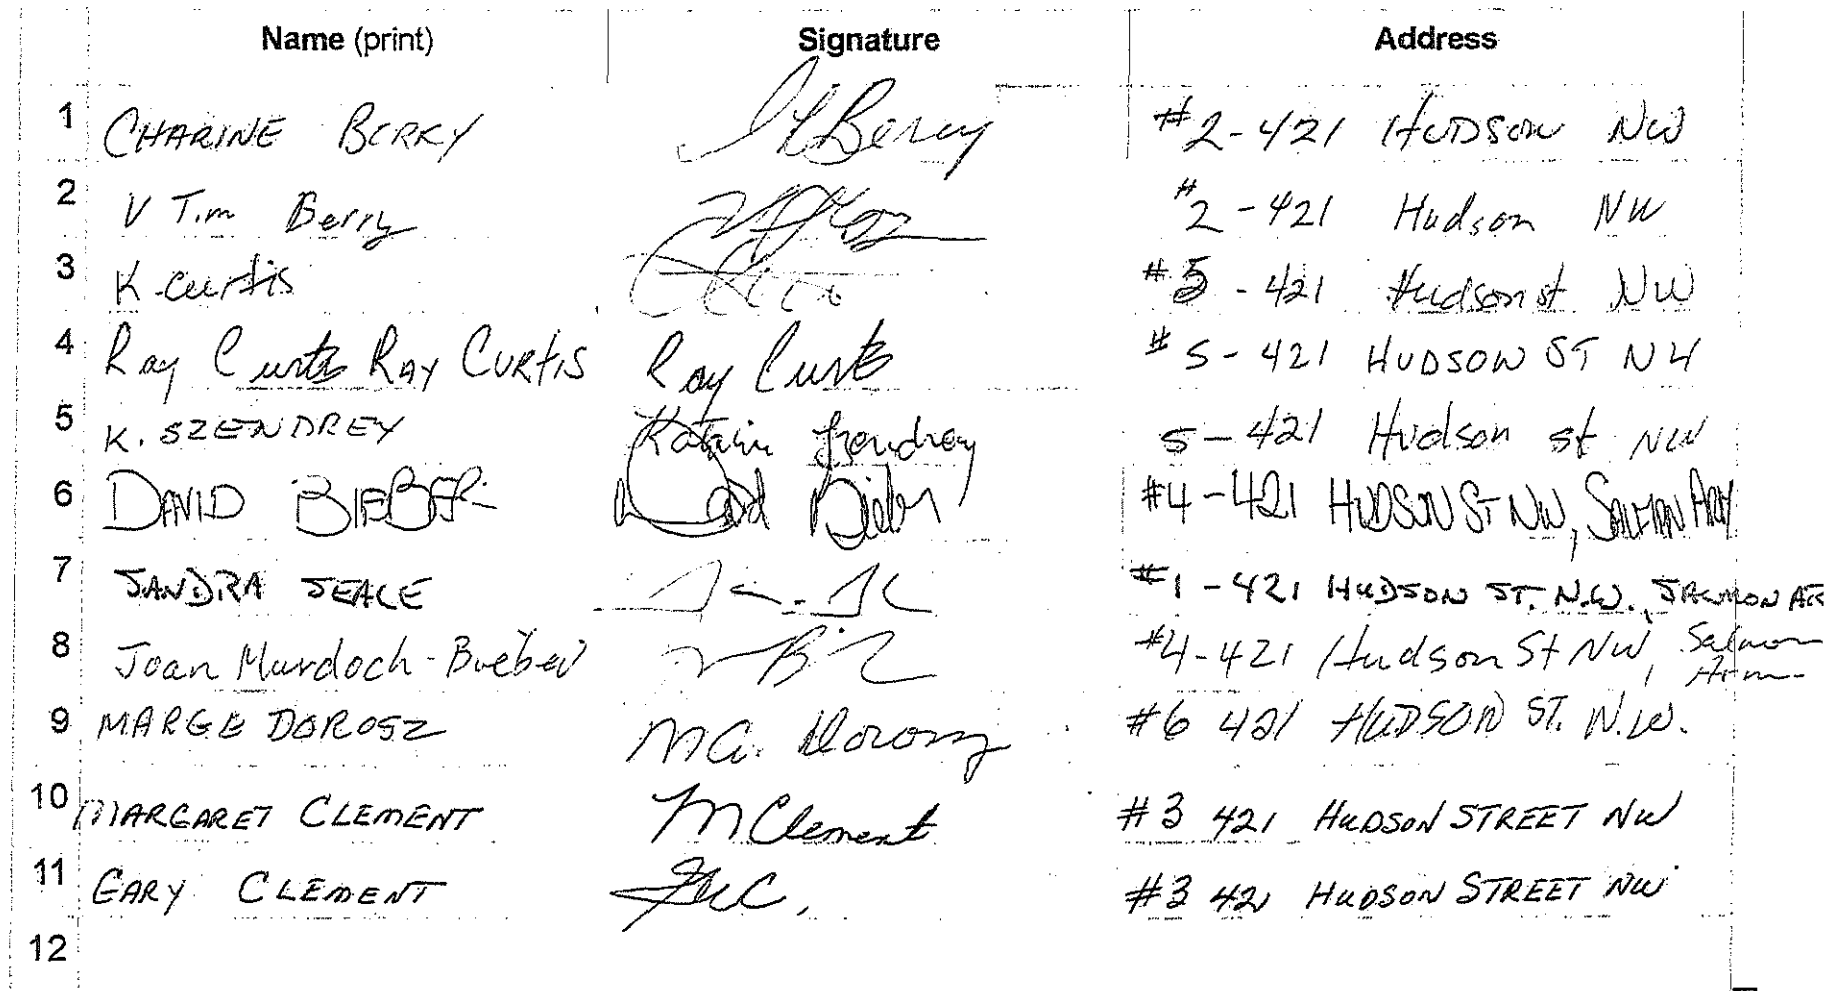 Name (print) Signature Address
1 CHARINE BERRY Berry #2-421 HUDSON NW
2 V Tim Berry #2-421 Hudson NW
3 K Curtis #5-421 Hudson st NW
4 Ray Curtis RAY CURTIS Ray Curtis #5-421 HUDSON ST NW
5 K. SZENDREY Katalin Szendrey 5-421 Hudson st NW
6 DAVID BIEBER David Bieber #4-421 HUDSON ST NW, SALMON ARM
7 SANDRA SEALE #1-421 HUDSON ST. N.W. SALMON AR
8 Joan Murdoch-Bieber #4-421 Hudson St NW, Salmon
Arm
9 MARGE DOROSZ MA. Dorosz #6 421 HUDSON ST. N.W.
10 MARGARET CLEMENT M Clement #3 421 HUDSON STREET NW
11 GARY CLEMENT #3 421 HUDSON STREET NW
12